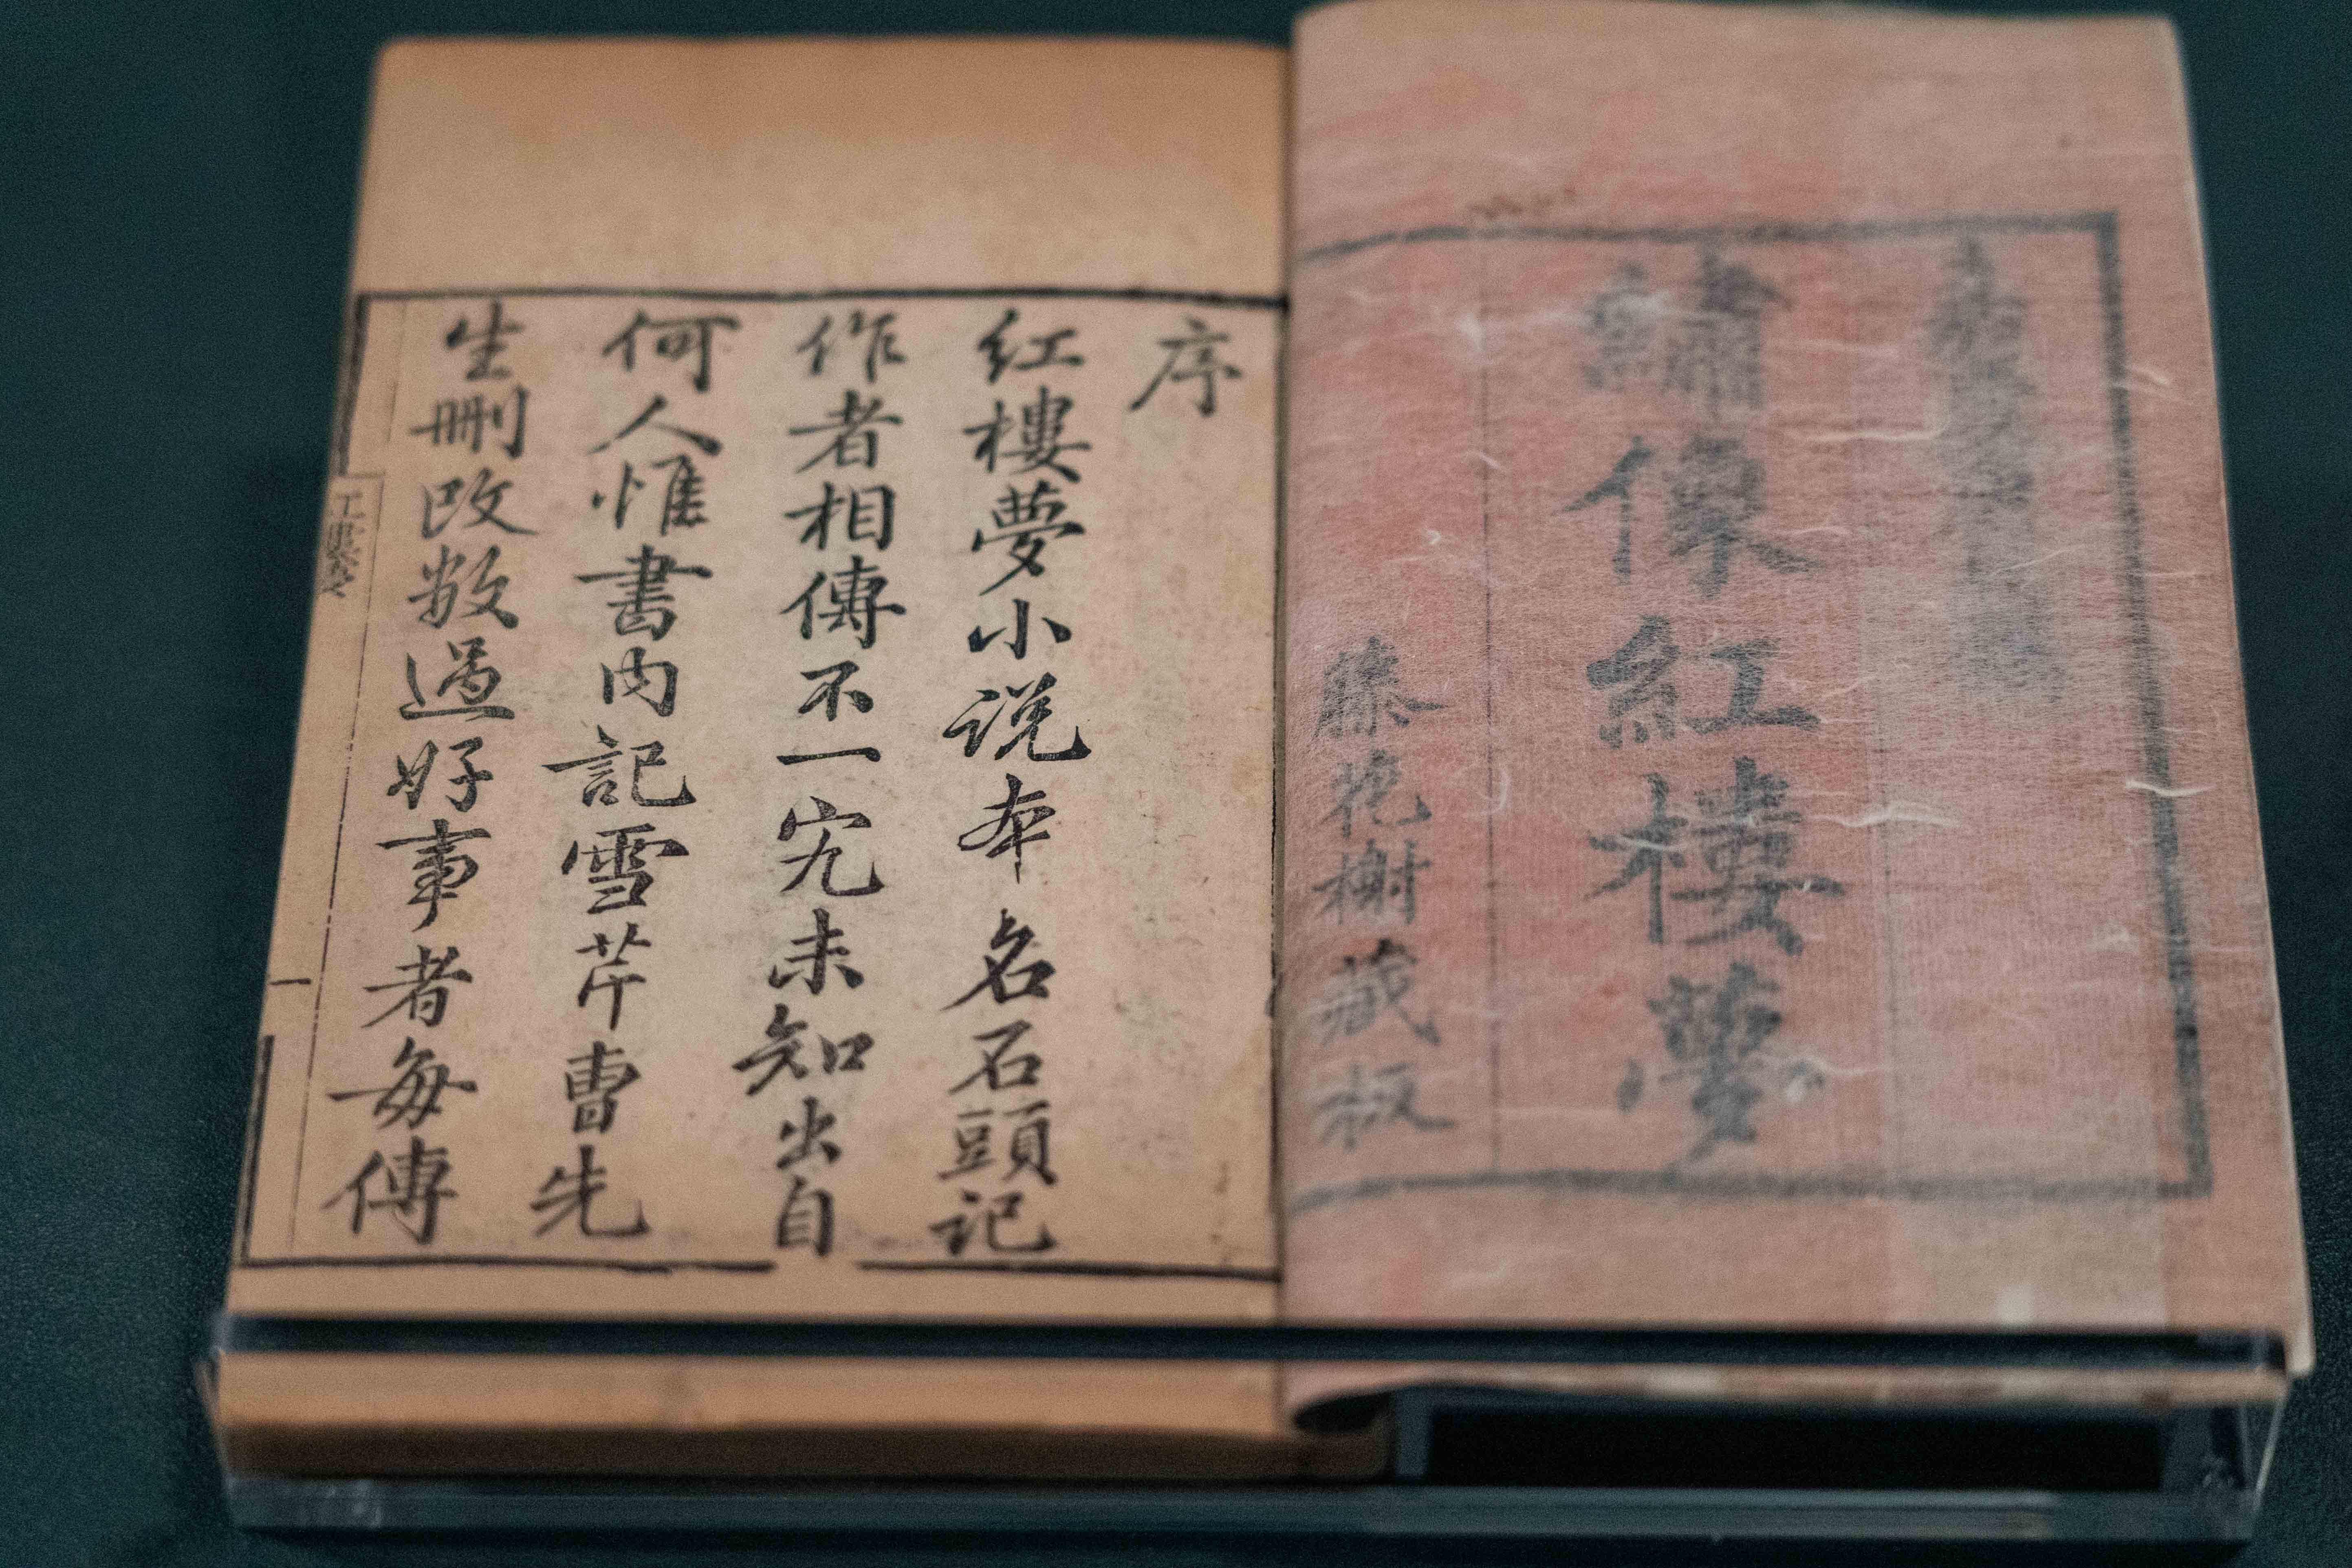 繡像紅樓夢
藤花榭藏板
序
红樓夢小说本名石頭记
作者相傳不一究未知出自
何人惟書内記雪芹曹先
生刪改数過好事者每傳
一